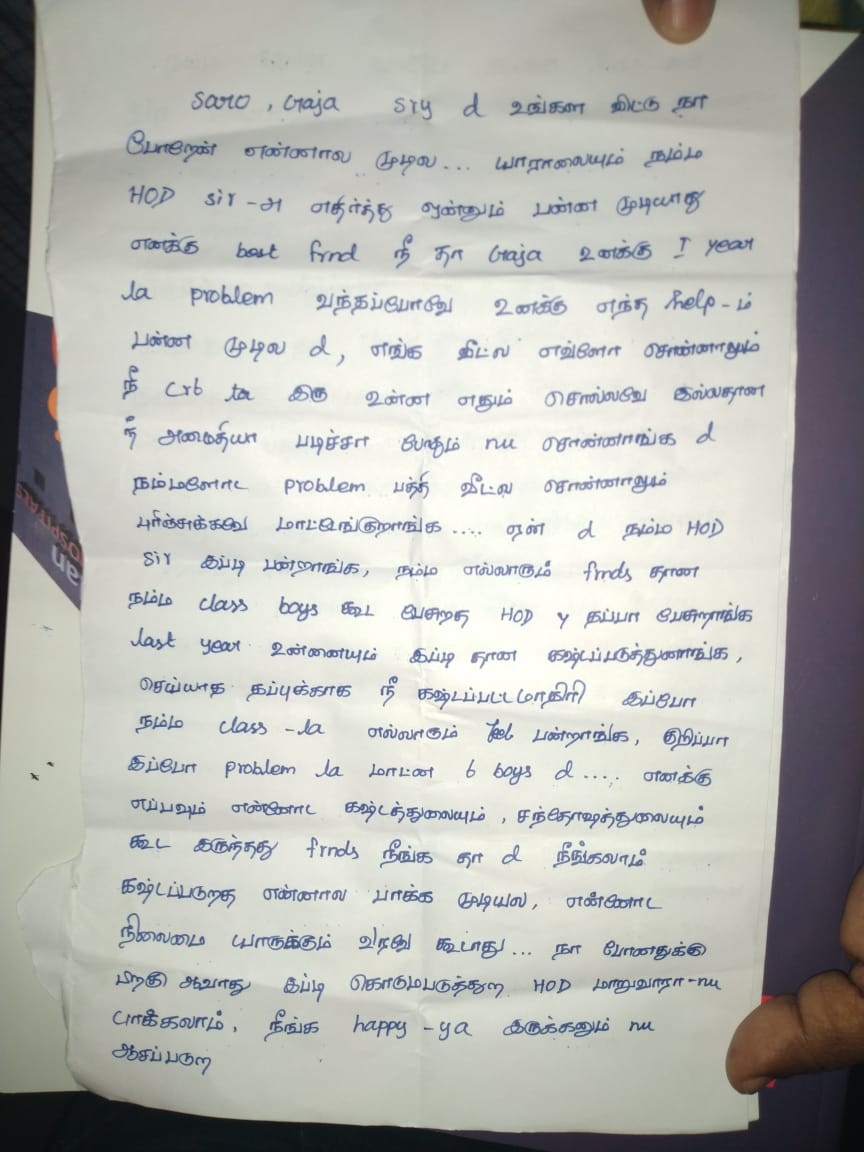 Saro, Graja sry d உங்கள விட்டு நா
போறேன் என்னால முடில... யாராலையும் நம்ம
HOD sir-அ எதிர்த்து ஒன்னும் பன்ன முடியாது
எனக்கு best frnd நீ தா Graja உனக்கு I year
la problem வந்தப்போவே உனக்கு எந்த help-ம்
பன்ன முடில d, எங்க வீட்ல எவ்ளோ சொன்னாலும்
நீ crb ta இரு உன்ன எதும் சொல்லவே இல்லதான
நீ அமைதியா படிச்சா போதும் nu சொன்னாங்க d
நம்மளோட problem பத்தி வீட்ல சொன்னாலும்
புரிஞ்சுக்கவே மாட்டேங்குறாங்க .... ஏன் d நம்ம HOD
sir இப்டி பன்றாங்க, நம்ம எல்லாரும் frnds தான
நம்ம class boys கூட பேசுறத HOD y தப்பா பேசுறாங்க
last year உன்னையும் இப்டி தான கஷ்டப்படுத்துனாங்க,
செய்யாத தப்புக்காக நீ கஷ்டப்பட்டமாதிரி இப்போ
நம்ம class-la எல்லாரும் feel பன்றாங்க, குறிப்பா
இப்போ problem la மாட்ன 6 boys d .... எனக்கு
எப்பவும் என்னோட கஷ்டத்துலையும், சந்தோஷத்துலையும்
கூட இருந்தது frnds நீங்க தா d நீங்கலாம்
கஷ்டப்படுறத என்னால பாக்க முடியல, என்னோட
நிலைமை யாருக்கும் வரவே கூடாது... நா போனதுக்கு
பிறகு ஆவாது இப்டி கொடுமபடுத்துற HOD மாறுவாரா-nu
பாக்கலாம், நீங்க happy-ya இருக்கனும் nu
ஆசப்படுற
HOSPITALS
an